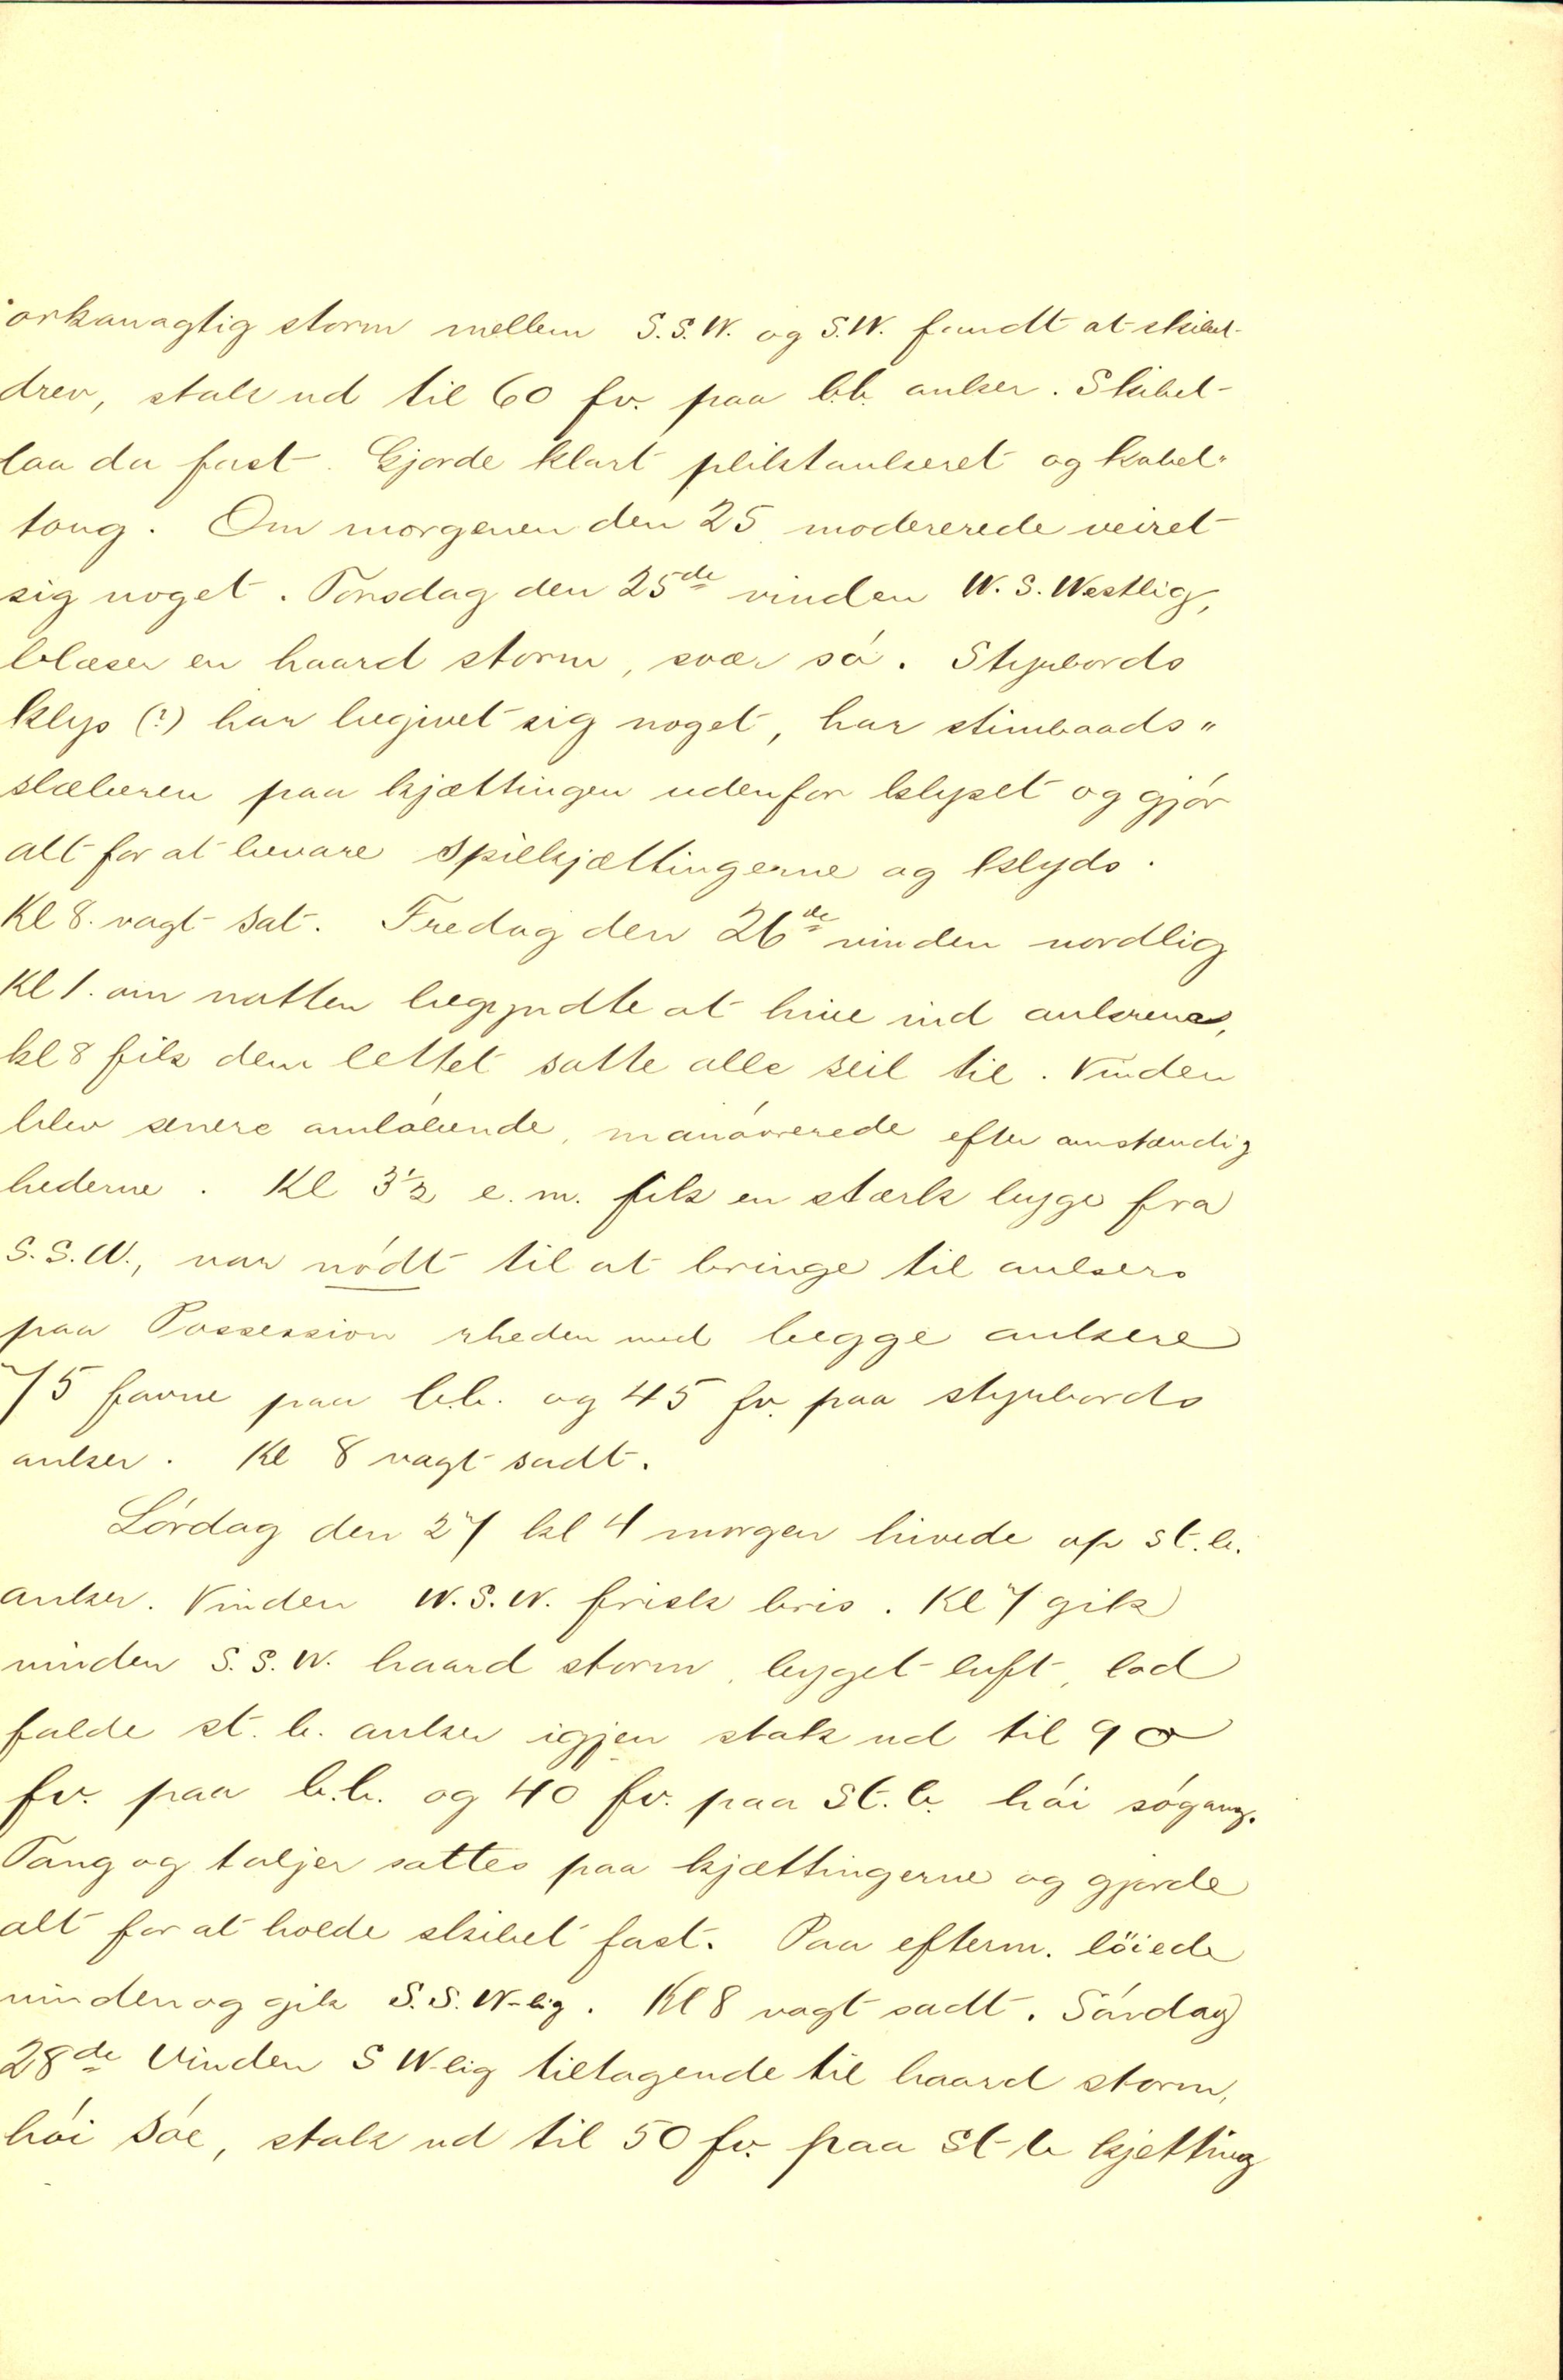 orkanagtig storm mellem S.S.W. og S.W. fandt at skibet
drev, stak ud til 60 fv. paa b.b. anker. Skibet
laa da fast. Gjorde klart pliktankeret og kabel-
toug. Om morgenen den 25. modererede veiret
sig noget. Torsdag den 25de vinden W.S. Westlig,
blæser en haard storm, svær sø. Styrbords
klys (?) har begivet sig noget, har stimbaads"
slæberen paa kjættingen udenfor klyset og gjør
alt for at bevare spilkjættingerne og klyds.
Kl 8. vagt sat. Fredag den 26de vinden nordlig
Kl 1. om natten begyndte at hive ind ankrene,
kl 8 fik dem lettet satte alle seil til. Vinden
blev senere omløbende, manøvrerede efter omstændig
hederne. Kl 3½ e.m. fik en stærk bygge fra
S.S.W., var nødt til at bringe til ankers
paa Possession rheden med begge ankere
75 favne paa b.b. og 45 fv. paa styrbords
anker. Kl 8 vagt sadt.
Lørdag den 27 kl 4 morgen hivede op st.b.
anker. Vinden W.S.W. frisk bris. Kl 7 gik
vinden S.S.W. haard storm, bygget luft, lod
falde st.b. anker igjen stak ud til 90
fv. paa b.b. og 40 fv. paa St.b. høi søgang.
Toug og taljer sattes paa kjættingerne og gjorde
alt for at holde skibet fast. Paa efterm. løiede
vinden og gik S.S.W-lig. Kl 8 vagt sadt. Søndag
28de Vinden S W-lig tiltagende til haard storm,
høi søe, stak ud til 50 fv. paa St b kjetting